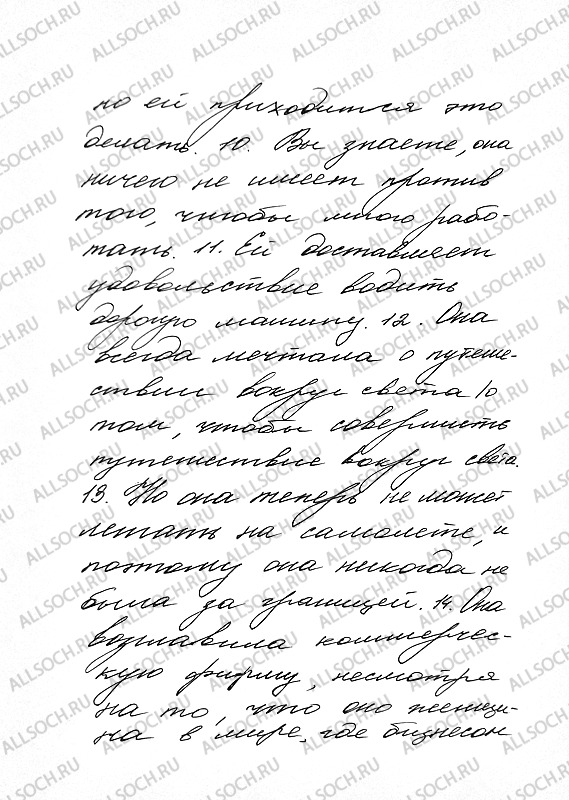 но ей приходится это
делать. 10. Вы знаете, она
ничего не имеет против
того, чтобы много рабо-
тать. 11. Ей доставляет
удовольствие водить
дорогую машину. 12. Она
всегда мечтала о путеше-
ствии вокруг света /о
том, чтобы совершить
путешествие вокруг света.
13. Но она теперь не может
летать на самолете, и
поэтому она никогда не
была за границей. 14. Она
возглавила коммерчес-
кую фирму, несмотря
на то, что она женщи-
на в мире, где бизнесом
ALLSOCH.RU